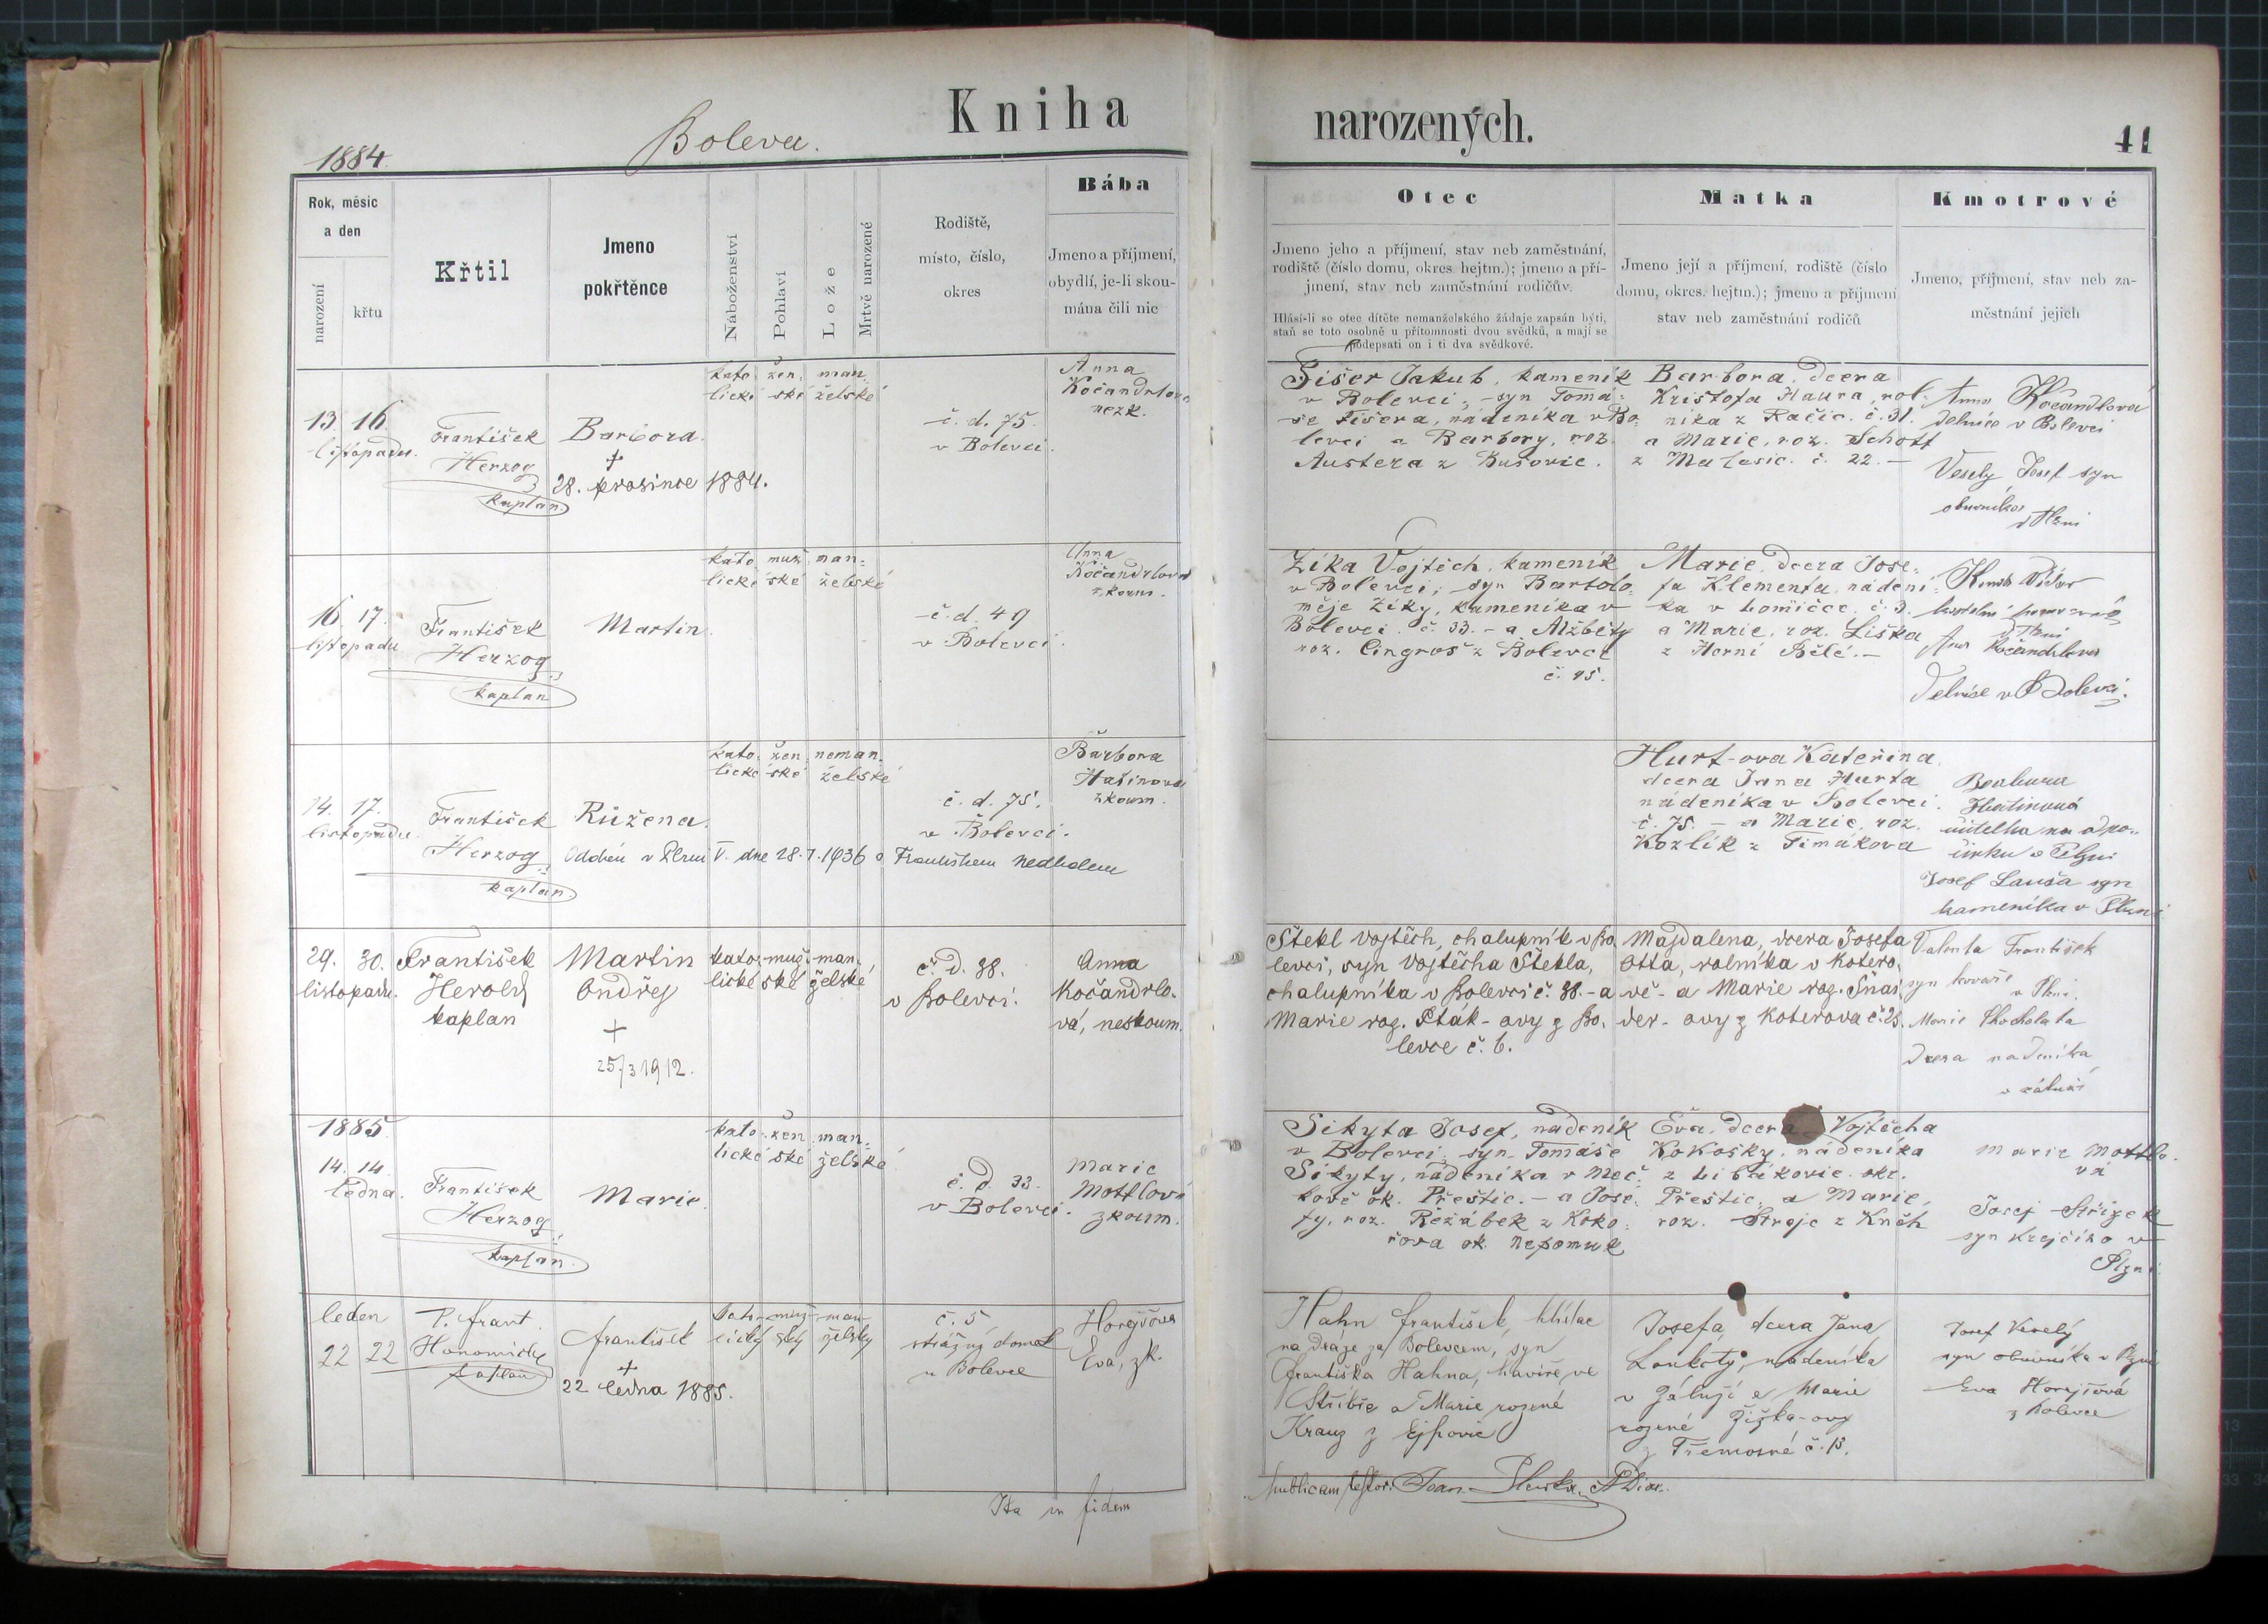 Kniha
narozených.
1884.
Bolevec.
41
Rok, měsíc
a den
narození
křtu
Křtil
Jmeno
pokřtěnce
Náboženství
Pohlaví
Lože
Mrtvě narozené
Rodiště,
místo, číslo,
okres
Bába
Jmeno a příjmení,
obydlí, je-li skou-
mána čili nic
Otec
Jmeno jeho a příjmení, stav neb zaměstnání,
rodiště (číslo domu, okres hejtm.); jmeno a pří-
jmení, stav neb zaměstnání rodičův.
Hlásí-li se otec dítěte nemanželského žádaje zapsán býti,
staň se toto osobně u přítomnosti dvou svědků, a mají se
podepsati on i ti dva svědkové.
Matka
Jmeno její a příjmení, rodiště (číslo
domu, okres. hejtm.); jmeno a příjmení
stav neb zaměstnání rodičů
Kmotrové
Jmeno, příjmení, stav neb za-
městnání jejich
13. 16.
listopadu.
František
Herzog
kaplan
Barbora.
†
28. prosince 1884.
kato- žen- man-
lické ské želské
č. d. 75.
v Bolevci.
Anna
Kočandrlová
nezk.
Fišer Jakub, kameník
v Bolevci, syn Tomá-
še Fišera, nádeníka v Bo-
levci a Barbory, roz.
Austera z Bušovic.
Barbora, dcera
Kristofa Haura, rol-
níka z Račic. č. 31.
a Marie, roz. Schoff
z Malesic. č. 22.—
Anna Kočandlová
dělnice v Bolevci
Veselý Josef syn
obuvníka
v Plzni
16. 17.
listopadu
František
Herzog
kaplan
Martin.
kato- muž- man-
lické ské želské
č. d. 49
v Bolevci.
Anna
Kočandrlová
zkoum.
Zíka Vojtěch, kameník
v Bolevci, syn Bartolo-
měje Zíky, kameníka v
Bolevci. č. 33.- a Alžběty
roz. Cingroš z Bolevce
č. 45.
Marie, dcera Jose-
fa Klementa, nádení-
ka v Lomičce. č. 3.
a Marie, roz. Liška
z Horní Bělé.—
v Plzni
Anna Kočandrlová
Dělnice v Bolevci.
14. 17.
listopadu.
František
Herzog
kaplan
Růžena.
Oddán v Plzni V. dne 28.7.1936 s Františkem Nedbalem
kato- žen- neman-
lické ské želské
č. d. 75.
v Bolevci.
Barbora
Hatinova
zkoum.
Hurt-ova Kateřina
dcera Jana Hurta
nádeníka v Bolevci.
č. 75. — a Marie, roz.
Kozlík z Timákova
Barbora
Hatinová
v Plzni
Josef Lauša syn
kameníka v Plzni
29. 30.
listopadu.
František
Herold
kaplan
Martin
Ondřej
†
25/3 1912.
kato- muž- man-
lické ské želské
č. d. 38.
v Bolevci.
Anna
Kočandrlo-
vá, neskoum.
Štekl Vojtěch, chalupník v Bo-
levci, syn Vojtěcha Štekla,
chalupníka v Bolevci č. 38.- a
Marie roz. Pták-ovy z Bo-
levce č. 6.
Magdalena, dcera Josefa
Otta, rolníka v Kotero-
vě- a Marie roz. Šnai-
der-ovy z Koterova č. 25.
Valenta František
syn kováře
v Plzni.
Marie Chocholata
dcera nadeníka
v záluží
1885.
14. 14.
ledna.
František
Herzog
kaplan.
Marie.
kato- žen- man-
lické ské želské
č. d. 33.
v Bolevci.
Marie
Mottlová
zkoum.
Sikyta Josef, nádeník
v Bolevci, syn Tomáše
Sikyty, nádeníka v Meč-
kově ok. Přeštic.— a Jose-
fy, roz. Řežábek z Koko-
řova ok. Nepomuk
Eva, dcera Vojtěcha
Kokošky, nádeníka
z Libákovic. okr.
Přeštic, a Marie,
roz. Stroje z Knĕh
Marie Mottlo-
vá
Josef Střízek
syn krejčího v
Plzni
leden
22 22
P. Frant.
Honomichl
kaplan
František
†
22 ledna 1885.
kato- muž- man-
lický ský želský
č. 5
strážný domek
u Bolevce
Horejšová
Eva, zk.
Hahn František, hlídač
na dráze za Bolevcem, syn
Františka Hahna, havíře ve
Stříbře a Marie rozené
Krauz z Ejpovic
Josefa, dcera Jana
Loukoty, nadeníka
v Záluží a Marie
rozené Žižka-ovy
z Třemošné č. 15.
Josef Veselý
syn obuvníka v Plzni
Eva Horejšová
z Bolevce
Ita in fidem
publicam testor: